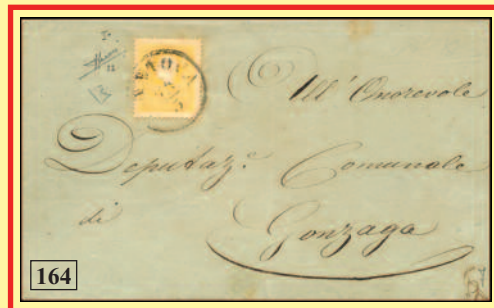 All' Onorevole
Deputaz.e Comunale
di
Gonzaga
164